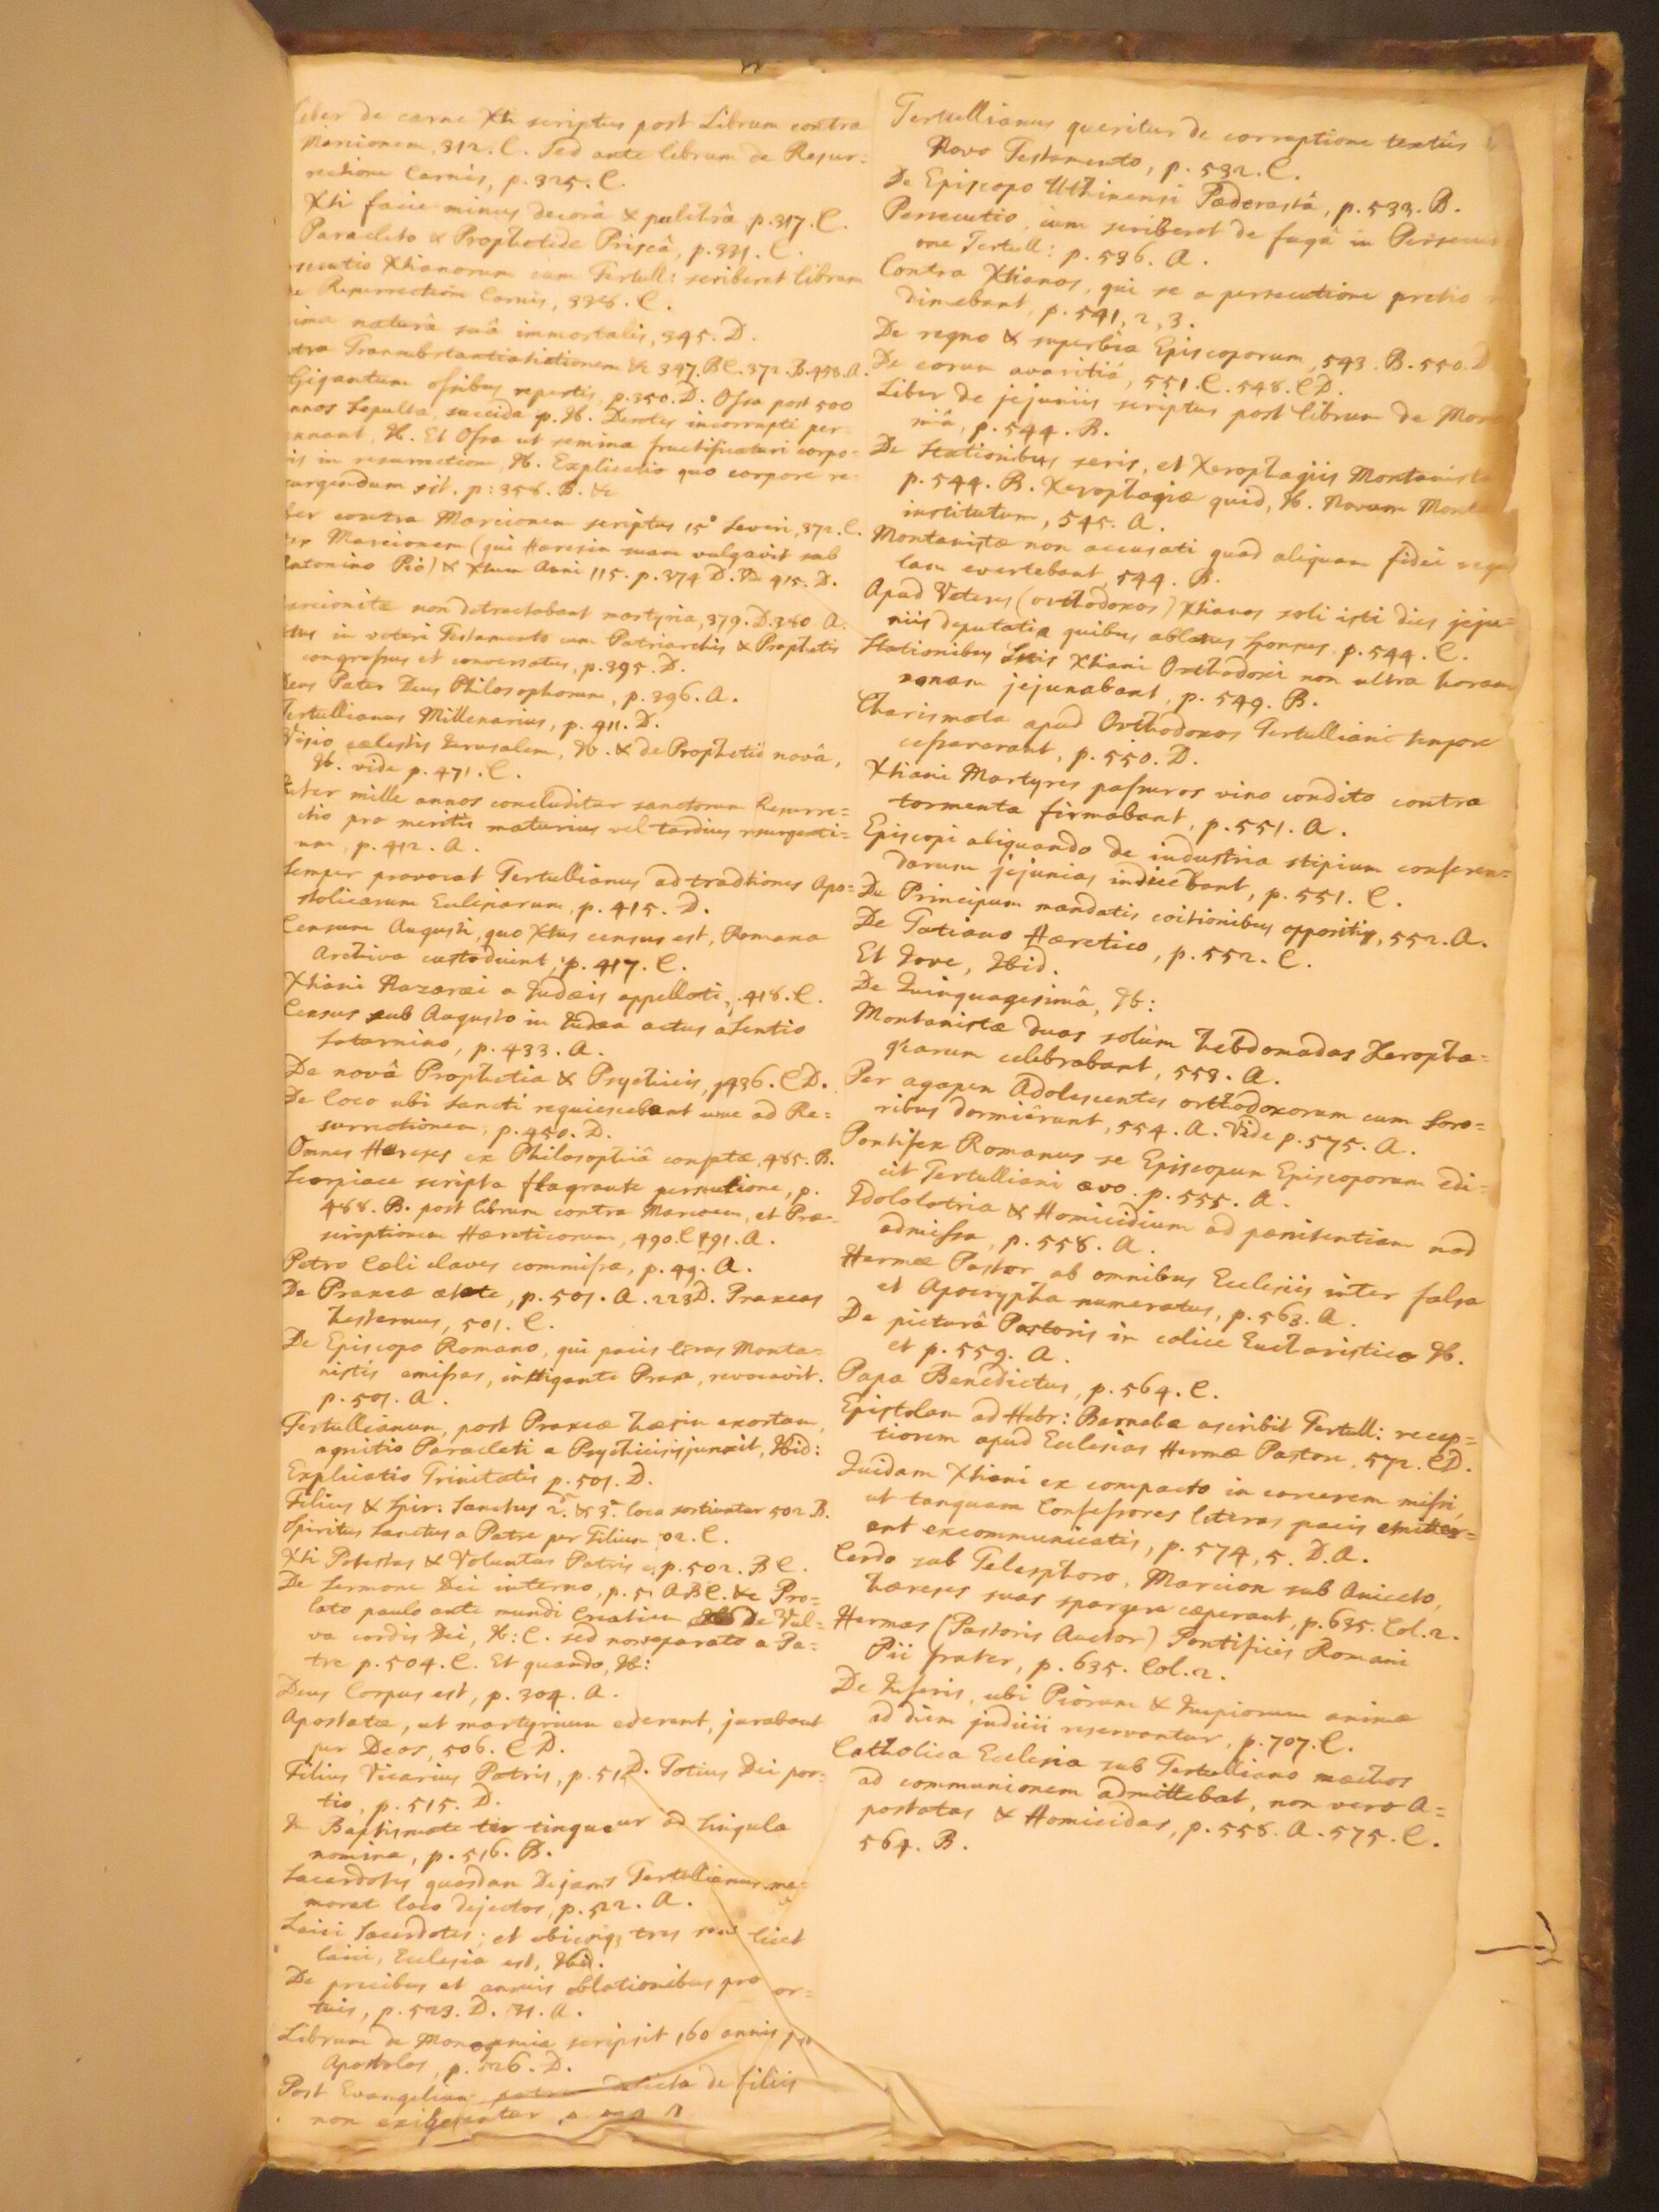 liber de carne Xti scriptus post Librum contra
Marcionem, 312. C. Sed ante librum de Resur=
rectione Carnis, p. 325. C.
Xti facie minus decorâ & pulchrâ p. 317. C.
Paracleto & Prophetide Priscâ, p. 331. C.
secutio Xtianorum cum Tertull: scriberet librum
de Resurrectione Carnis, 338. C.
ima naturâ suâ immortalis, 345. D.
tra Transubstantiationem &c 347. BC. 372. B. 458. A.
Gigantum ossibus repertis, p. 350. D. Ossa post 500
nnos sepulta, succida p. Ib. Dentes incorrupti per=
manent, Ib. Et Ossa ut semina fructificaturi corpo=
ris in resurrectione, Ib. Explicatio quo corpore re=
surgendum sit. p: 358. B. &c
ber contra Marcionem scriptus 15° Severi, 372. C.
ter Marcionem (qui Haeresin suam vulgavit sub
Antonino Pio) & Xtum Anni 115. p. 374 D. Vd 415. D.
arcionitæ non detractabant martyria, 379. D. 380. A.
tus in veteri Testamento cum Patriarchis & Prophetis
congressus et conversatus, p. 395. D.
Deus Pater Deus Philosophorum, p. 396. A.
Tertullianus Millenarius, p. 411. D.
Visio cælestis Jerusalem, Ib. & de Prophetiâ novâ,
Ib. vide p. 471. C.
Inter mille annos concluditur sanctorum Resurre=
ctio pro meritis maturius vel tardius resurgenti=
um, p. 412. A.
Semper provocat Tertullianus ad traditiones Apo=
stolicarum Ecclesiarum, p. 415. D.
Censum Augusti, quo Xtus census est, Romana
Archiva custodiunt, p. 417. C.
Xtiani Nazaræi a Judæis appellati, . 418. C.
Census sub Augusto in Judæa actus a Sentio
Saturnino, p. 433. A.
De novâ Prophetia & Psychicis, p436. CD.
De loco ubi Sancti requiescebant usque ad Re=
surrectionem, p. 450. D.
Omnes Hæreses ex Philosophiâ conflatæ, 485. B.
Scorpiace scripta flagrante persecutione, p.
488. B. post librum contra Marcionem, et Præ=
scriptionem Hæreticorum, 490. C 491. A.
Petro Cæli claves commissæ, p. 49. A.
De Praxeæ ætate, p. 501. A. 223 D. Praxeas
hesternus, 501. C.
De Episcopo Romano, qui pacis literas Monta=
nistis emissas, instigante Praxea, revocavit.
p. 501. A.
Tertullianum, post Praxeæ hæresin exortam,
agnitio Paracleti a Psychicis disjunxit, Ibid:
Explicatio Trinitatis p. 501. D.
Filius & Spir: Sanctus 2. & 3. loca sortiuntur 502. B.
Spiritus Sanctus a Patre per Filium 02. C.
Xti Potestas & Voluntas Patris p. 502. BC.
De Sermone Dei interno, p. 5 ABC. &c Pro=
lato paulo ante mundi Creationem de Vul=
va cordis Dei, Ib: C. sed non separato a Pa=
tre p. 504. C. Et quando, Ib:
Deus Corpus est, p. 304. A.
Apostatæ, ut martyrium ederent, jurabant
per Deos, 506. CD.
Filius Vicarius Patris, p. 51 D. Totius Dei por=
tio, p. 515. D.
In Baptismate ter tinguntur ad singula
nomina, p. 516. B.
Sacerdotes quosdam Digamos Tertullianus me=
morat loco dejectos, p. 522. A.
Laici Sacerdotes; et ubicunq; tres sunt licet
laici, Ecclesia est, Ibid.
De precibus et annuis oblationibus pro or=
tuis, p. 523. D. 31. A.
Librum de Monogamia scripsit 160 annis
Apostolos, p. 526. D.
Post Evangelium delicta de filiis
non exigebantur
Tertullianus queritur de corruptione textûs
Novo Testamento, p. 532. C.
De Episcopo Uthinensi Pæderastâ, p. 533. B.
Persecutio, cum scriberet de fugâ in Persecu
one Tertull: p. 536. A.
Contra Xtianos, qui se a persecutione pretio
dimebant, p. 541, 2, 3.
De regno & superbia Episcoporum, 543. B. 550. D
De eorum avaritiâ, 551. C. 548. CD.
Liber de jejuniis scriptus post librum de Mono
miâ, p. 544. B.
De Stationibus seris, et Xerophagiis Montanista
p. 544. B. Xerophagiæ quid, Ib. Novum Monta
institutum, 545. A.
Montanistæ non accusati quod aliquam fidei regu
lam evertebant, 544. B.
Apud Veteres (orthodoxos) Xtianos soli isti dies jeju=
niis deputati quibus ablatus sponsus. p. 544. C.
Stationibus suis Xtiani Orthodoxi non ultra horam
nonam jejunabant, p. 549. B.
Charismata apud Orthodoxos Tertulliani tempore
cessaverant, p. 550. D.
Xtiani Martyres passuros vino condito contra
tormenta firmabant, p. 551. A.
Episcopi aliquando de industria stipium conferen=
darum jejunia indicebant, p. 551. C.
De Principum mandatis coitionibus oppositis, 552. A.
De Tatiano Hæretico, p. 552. C.
Et Jove, Ibid.
De Quinquagesimâ, Ib:
Montanistæ duas solùm hebdomadas Xeropha=
giarum celebrabant, 553. A.
Per agapen Adolescentes orthodoxorum cum Soro=
ribus dormiêrunt, 554. A. Vide p. 575. A.
Pontifex Romanus se Episcopum Episcoporum edi=
cit Tertulliani ævo. p. 555. A.
Idololatria & Homicidium ad pænitentiam non
admissa, p. 558. A.
Hermæ Pastor ab omnibus Ecclesiis inter falsa
et Apocrypha numeratus, p. 563. A.
De picturâ Pastoris in calice Eucharistico Ib.
et p. 559. A.
Papa Benedictus, p. 564. C.
Epistolam ad Hebr: Barnabæ ascribit Tertull: recep=
tiorem apud Ecclesias Hermæ Pastore, 572. CD.
Quidam Xtiani ex compacto in carcerem missi,
ut tanquam Confessores literas pacis emitter=
ent excommunicatis, p. 574, 5. D. A.
Cerdo sub Telesphoro, Marcion sub Aniceto,
hæreses suas spargere cæperant, p. 635. Col. 2.
Hermas (Pastoris Auctor) Pontificis Romani
Pii frater, p. 635. Col. 2.
De Inferis, ubi Piorum & Impiorum animæ
ad diem judicii reservantur, p. 707. C.
Catholica Ecclesia sub Tertulliano mæchos
ad communionem admittebat, non vero A=
postatas & Homicidas, p. 558. A. 575. C.
564. B.